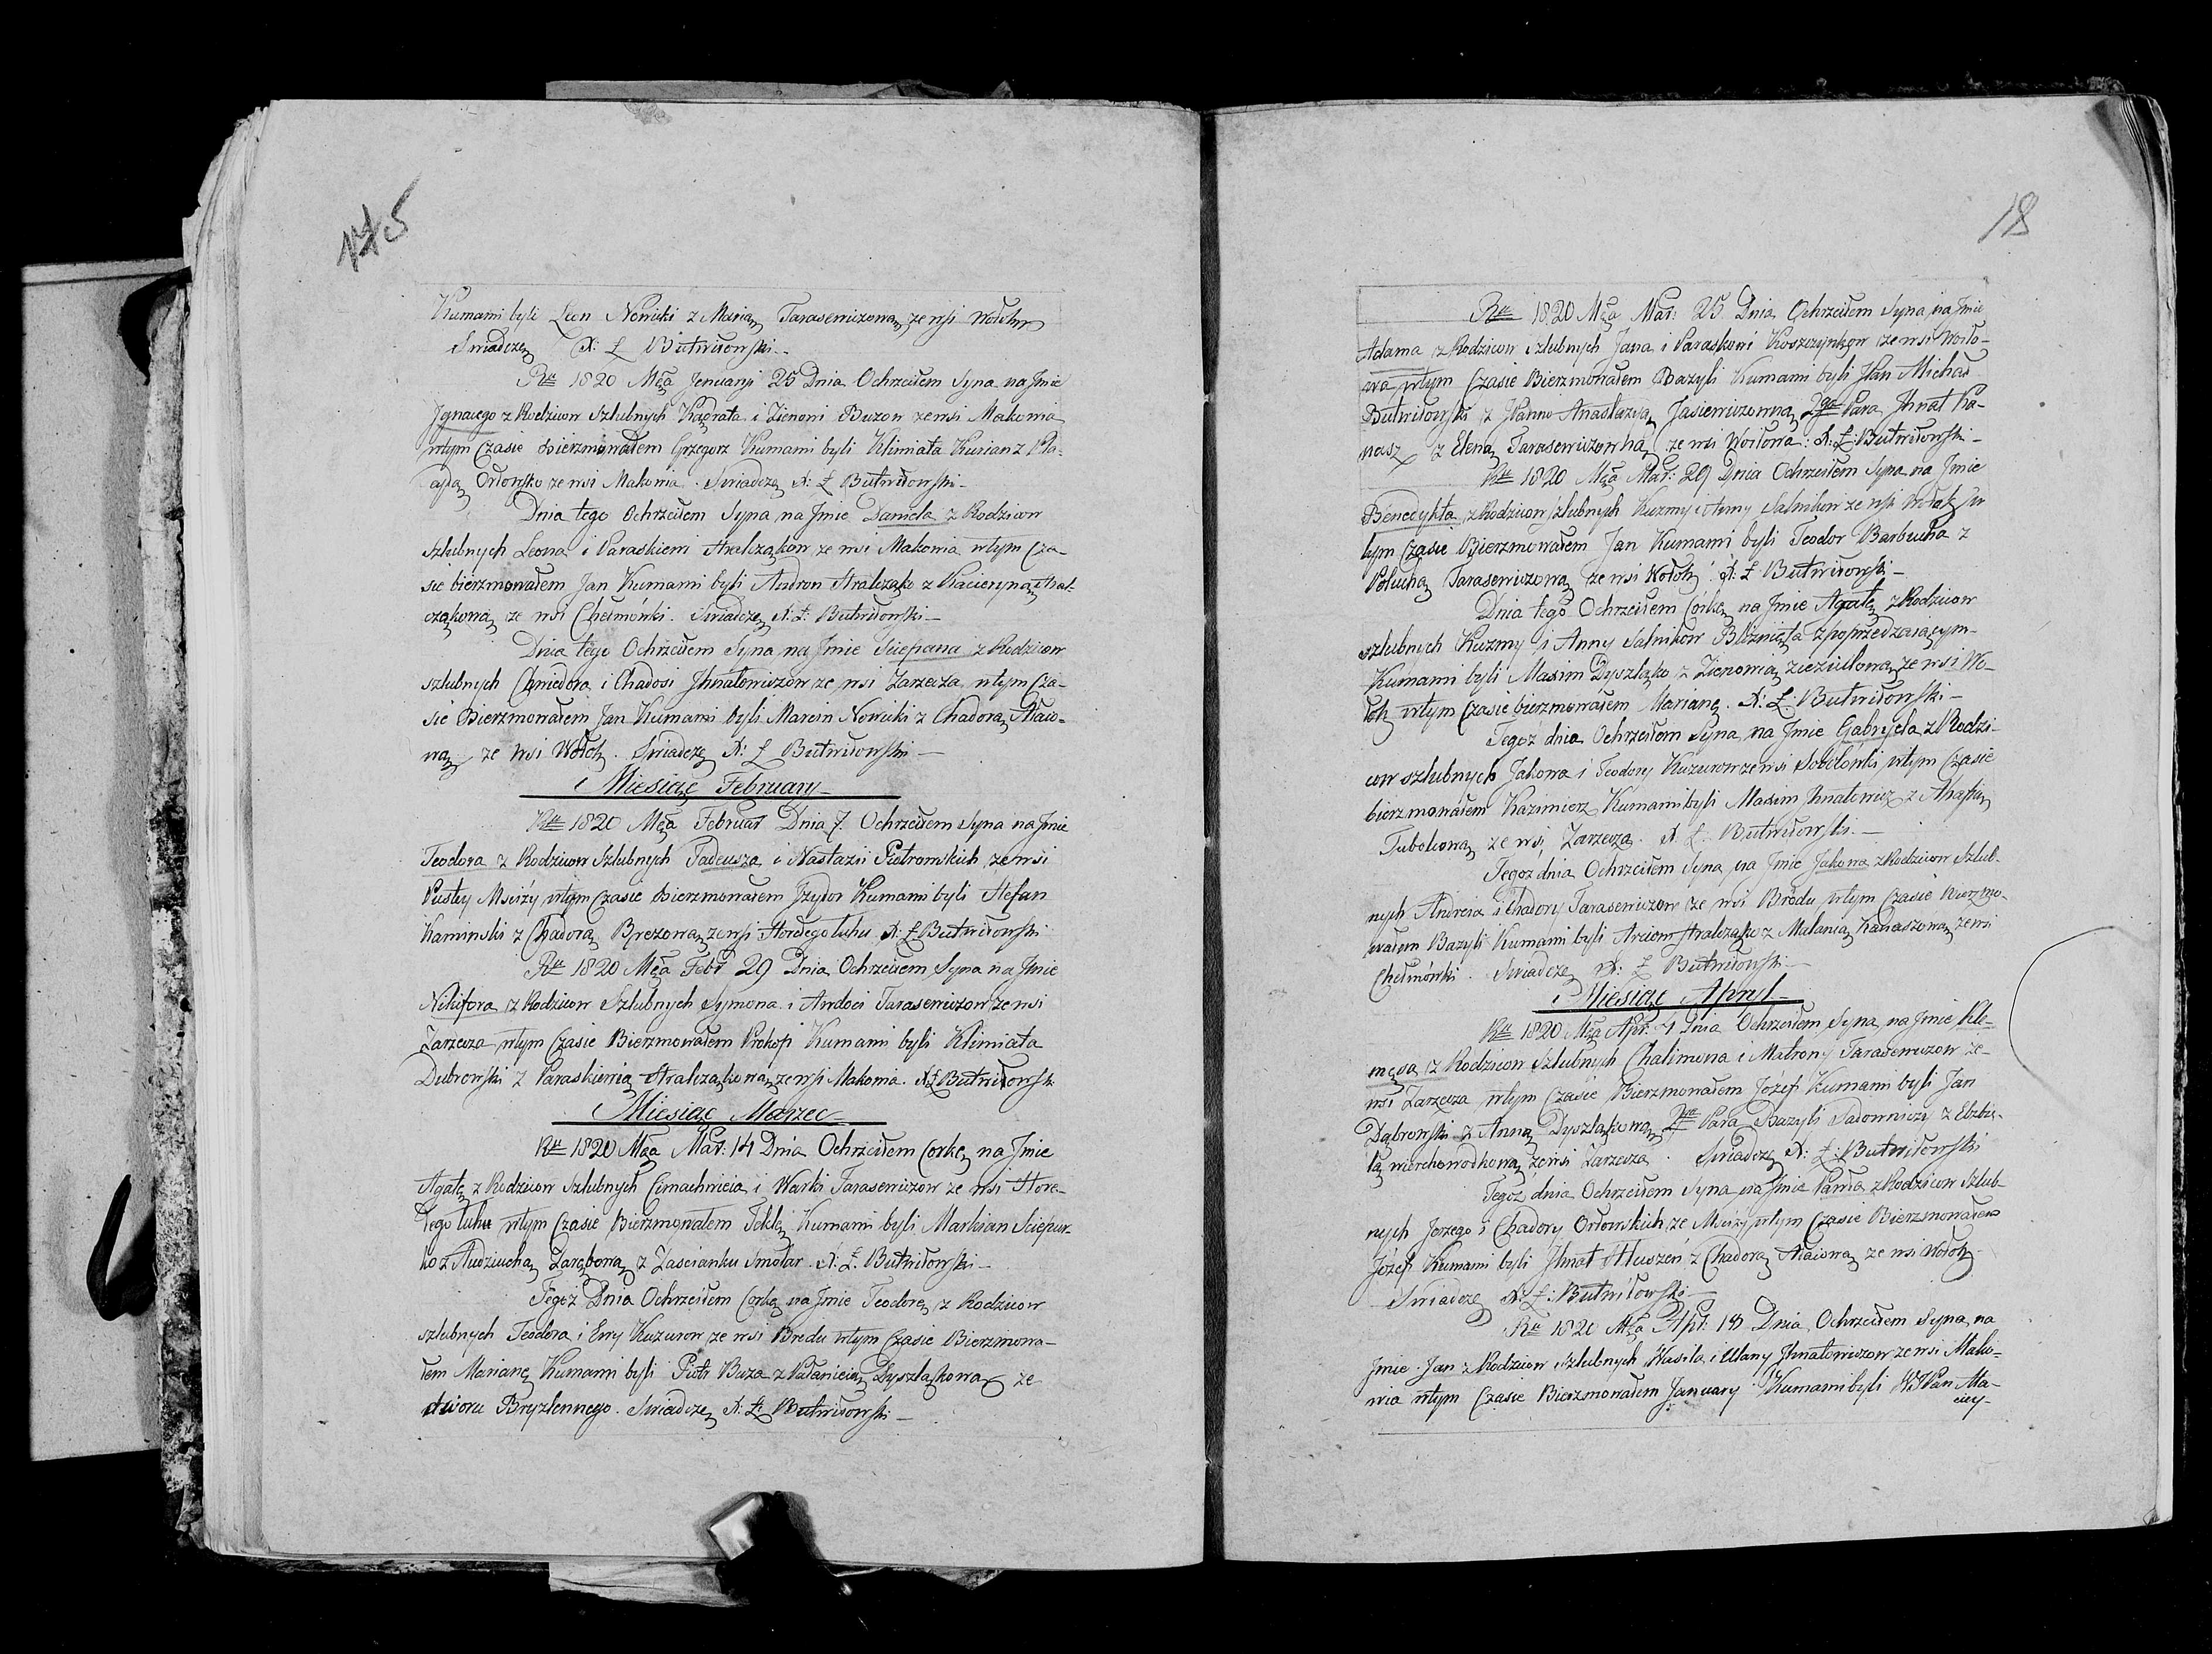 145
Kumami byli Leon Nowicki z Marią Tarasewiczową ze wsi Wołoki
Swiadczę X: Ł Butwiłowski
Rku 1820 Mca Jenuarij 25 Dnia Ochrzciłem Syna na Jmie
Jgnacego z Rodzicow Szlubnych Kądrata i Zienowi Buzow ze wsi Makowia
wtym Czasie bierzmowałem Grzegorz Kumami byli Klimiata Kurian z
Orłowsko ze wsi Makowia. Swiadczę X: Ł Butwiłowski
Dnia tego Ochrzciłem Syna na Jmie Daniela z Rodzicow
szlubnych Leona i Paraskiewi Atralcząkow ze wsi Makowia wtym Cza-
sie bierzmowałem Jan Kumami byli Andron Atralcząko z Kacieryną Atral-
cząkową ze wsi Chełmówki. Swiadczę X: Ł: Butwiłowski
Dnia tego Ochrzciłem Syna na Jmie Sciepana z Rodzicow
szlubnych Chwiedora i Chadosi Jhnatowiczow ze wsi Zarzecza wtym Cza-
sie Bierzmowałem Jan Kumami byli Marcin Nowicki z Chadorą
wą ze wsi Wołok. Swiadczę X: Ł Butwiłowski
Miesiąc February
Rku 1820 Mca Februar Dnia 7. Ochrzciłem Syna na Jmie
Teodora z Rodzicow Szlubnych Tadeusza i Nastazii Piotrowskich ze wsi
Pustey Mściży wtym Czasie Bierzmowałem Jzydor Kumami byli Stefan
Kaminski z Chadorą Brezową ze wsi Horełego łuhu X: Ł Butwiłowski
Rku 1820 Mca Febr 29 Dnia Ochrzciłem Syna na Jmie
Nikifora z Rodzicow Szlubnych Symona i Awdoci Tarasewiczow ze wsi
Zarzecza wtym Czasie Bierzmowałem Prokop Kumami byli Klimiata
Dubrowski z Paraskiewią Atralcząkową ze wsi Makowia. X Ł Butwiłowski
Miesiąc Marzec
Rku 1820 Mca Mar: 14 Dnia Ochrzciłem Corkę na Jmie
Agatę z Rodzicow Szlubnych Cimachwieia i Warki Tarasewiczow ze wsi Hore-
łego łuhu wtym Czasie Bierzmowałem Teklę Kumami byli Markian Sciepur-
ko z Audziuchą Zarębową z Zascianku Smolar. X: Ł: Butwiłowski
Tegoż Dnia Ochrzciłem Corkę na Jmie Teodorę z Rodzicow
szlubnych Teodora i Ewy Kuzurow ze wsi Brodu wtym Czasie Bierzmowa-
łem Marianę Kumami byli Piotr Buza z Pałanieią Dyszląkową ze
dworu Bryzlennego. Swiadczę X: Ł: Butwiłowski
18
Rku 1820 Mca Mar: 25 Dnia Ochrzciłem Syna na Jmie
Adama z Rodzicow szlubnych Jana i Paraskowi Koszczynkow ze wsi Woiło-
wa wtym Czasie Bierzmowałem Bazyli Kumami byli JPan Michał
Butwiłowski z JPanno Anastazyą Jasiewiczowną 2ga Para Jhnat Ka-
nasz z Eleną Tarasewiczowną ze wsi Woiłowa: X: Ł: Butwiłowski
Rku 1820 Mca Mar: 29 Dnia Ochrzciłem Syna na Jmie
Benedykta z Rodzicow szlubnych Kuzmy i Anny Salnikow ze wsi Wołok w
tym Czasie Bierzmowałem Jan Kumami byli Teodor Barbucha z
Połuchą Tarasewiczową ze wsi Wołok. X: Ł Butwiłowski
Dnia tego Ochrzciłem Córkę na Jmie Agatę z Rodzicow
szlubnych Kuzmy i Anny Salnikow Bliźnięta z poprzedzaiącym
Kumami byli Maxim Dyszląko z Zienowią ze wsi Wo-
łok wtym Czasie bierzmowałem Marianę. X: Ł: Butwiłowski
Tegoz dnia Ochrzciłem Syna na Jmie Gabryela z Rodzi-
cow szlubnych Jakowa i Teodory Kuzurow ze wsi Sobolowki wtym Czasie
bierzmowałem Kazimierz Kumami byli Maxim Jhnatowicz z Ahapią
Tubolcową ze wsi Zarzecza. X Ł. Butwiłowski.
Tegoż dnia Ochrzciłem Syna na Jmie Jakowa z Rodzicow Szlub-
nych Andreia i Chadory Tarasewiczow ze wsi Brodu wtym Czasie Bierzmo-
wałem Bazyli Kumami byli Arciom Atralcząko z Mulanią Kanaszową ze wsi
Chełmówki. Swiadczę X: Ł Butwiłowski
Miesiąc Apryl
Rku 1820 Mca Apr: 4 Dnia Ochrzciłem Syna na Jmie Kle-
męsa z Rodzicow Szlubnych Chalimona i Matrony Tarasewiczow ze
wsi Zarzecza wtym Czasie Bierzmowałem Józef Kumami byli Jan
Dąbrowski z Anną Dyszlakową 2ga Para Bazyli Sadowniczy z Elzbie-
tą wierchowodkową ze wsi Zarzecza. Swiadczę X: Ł: Butwiłowski
Tegoż dnia Ochrzciłem Syna na Jmie Pawła z Rodzicow Szlub-
nych Jerzego i Chadory Orłowskich ze Mściży wtym Czasie Bierzmowałem
Józef Kumami byli Jhnat Hłuszeń z Chadorą ze wsi Wołok
Swiadczę X: Ł: Butwiłowski
Rku 1820 Mca Apr: 18 Dnia Ochrzciłem Syna na
Jmie Jan z Rodzicow Szlubnych Wasila i Ulany Jhnatowiczow ze wsi Mako-
wia wtym Czasie Bierzmowałem January Kumami byli WJPan Ma-
ciey